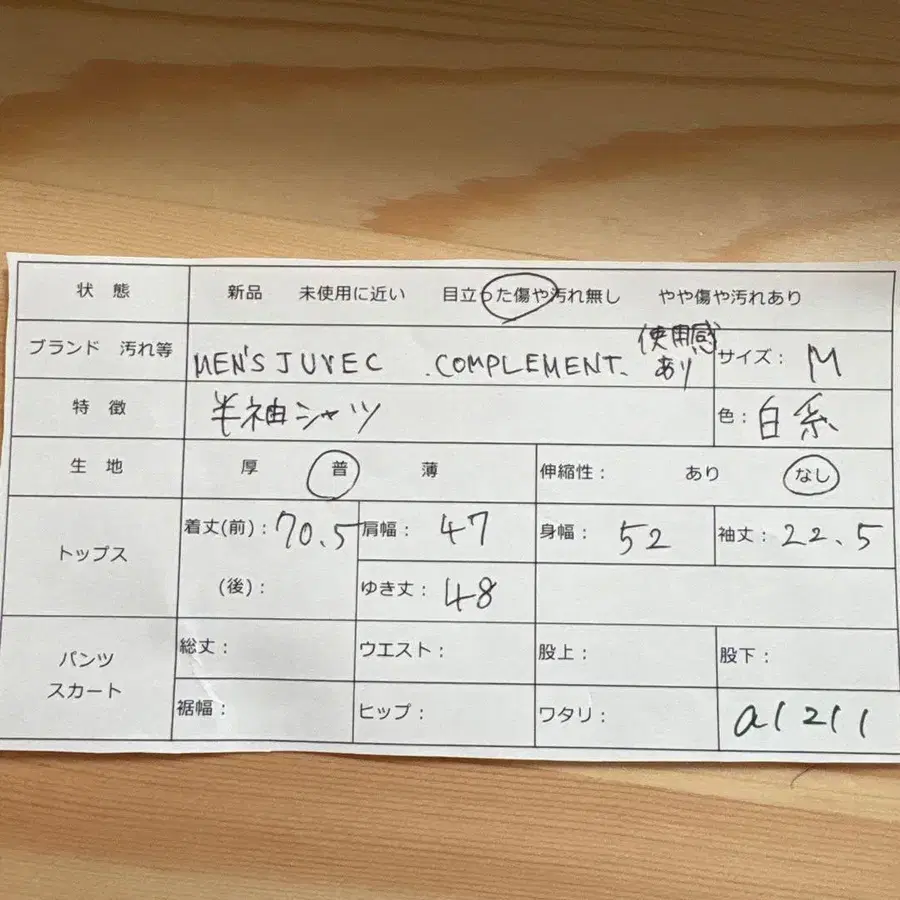 状 態 新品 未使用に近い 目立った傷や汚れ無し やや傷や汚れあり
ブランド 汚れ等 MEN'S JUVEC .COMPLEMENT. 使用感あり サイズ: M
特 徴 半袖シャツ 色: 白系
生 地 厚 普 薄 伸縮性: あり なし
トップス 着丈(前): 70.5 肩幅: 47 身幅: 52 袖丈: 22.5
(後): ゆき丈: 48
パンツ スカート 総丈: ウエスト: 股上: 股下:
裾幅: ヒップ: ワタリ: a1211